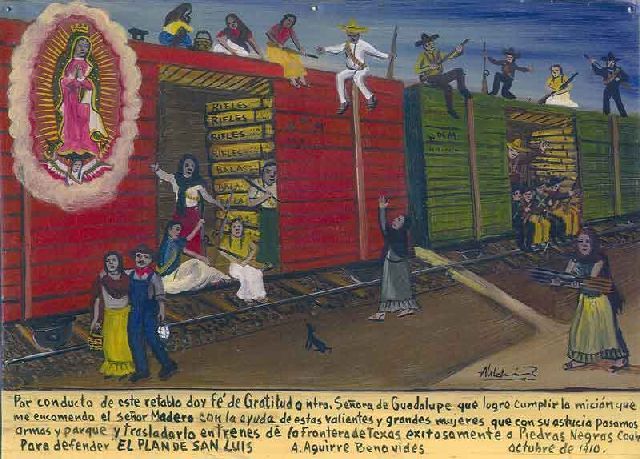 RIFLES
RIFLES
RIFLES
RIFLES
BALAS
BALAS
Por conducto de este retablo doy Fé de Gratitud a ntra. Señora de Guadalupe que logro cumplir la micion que
me encomendo el señor Madero con la ayuda de estas valientes y grandes mujeres que con su astucia pasamos
armas y parque y trasladarlo en trenes de la Frontera de Texas exitosamente a Piedras Negras Coah
Para defender EL PLAN DE SAN LUIS A. Aguirre Benavides octubre de 1910.